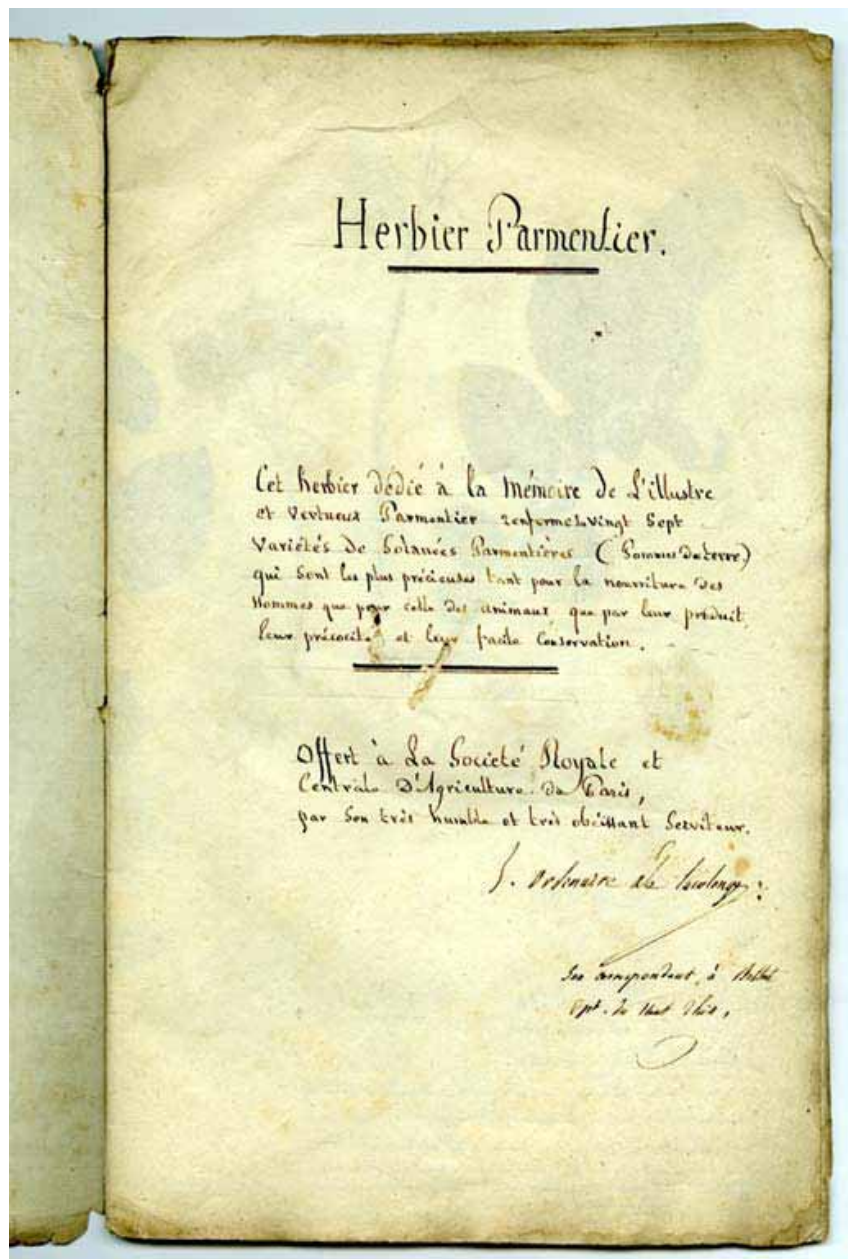 Herbier Parmentier.
Cet herbier dédié à la Mémoire de L'illustre
et Vertueux Parmentier renferme vingt Sept
Variétés de Solanées Parmentières (Pommes de terre)
qui Sont les plus précieuses tant pour la nourriture des
Hommes que pour celle des animaux que par leur produit,
leur précocité et leur facile Conservation.
Offert à La Société Royale et
Centrale D'Agriculture de Paris,
par Son très humble et très obéissant Serviteur.
J. Ordinaire de
Son correspondant, à
Dpt. du Haut Rhin,